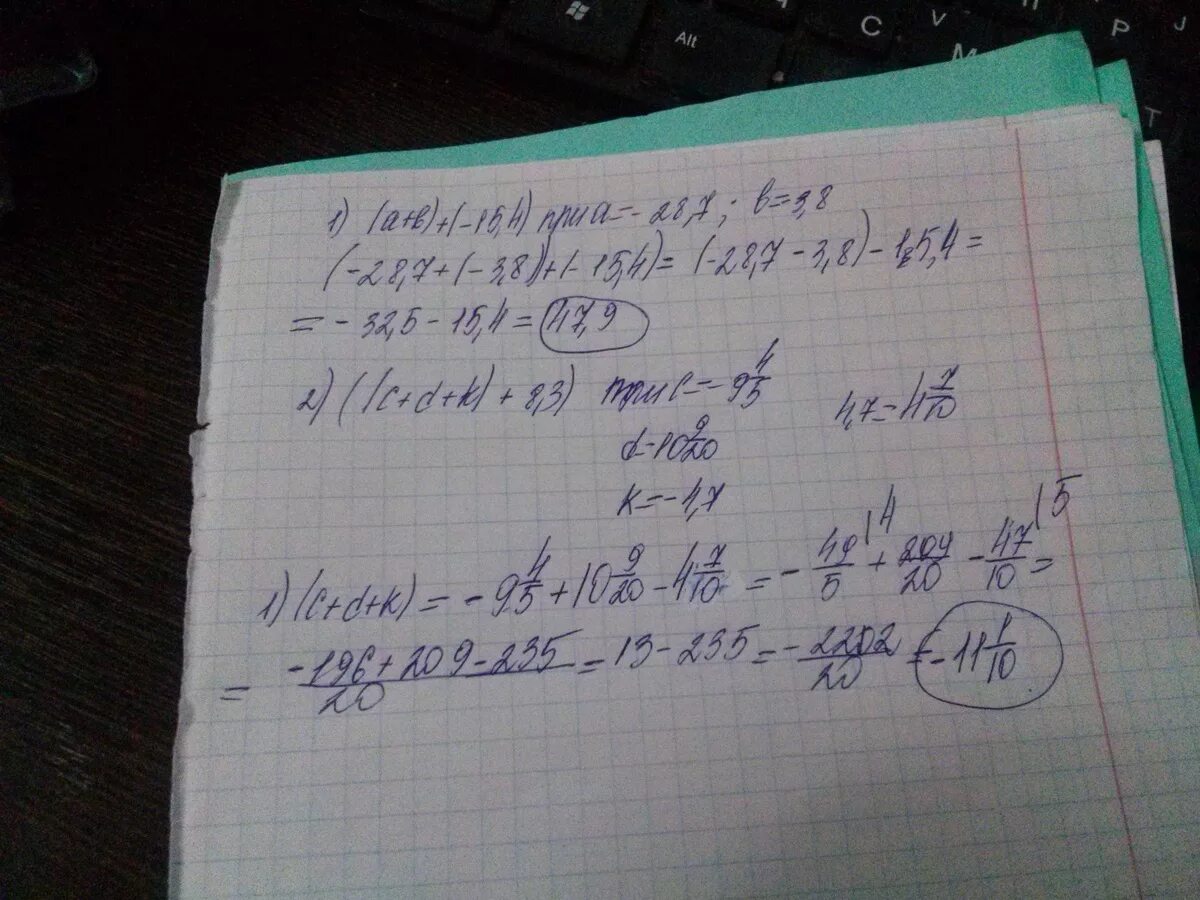 Alt
C
V
M
P
J
T
1) (a+b)+(-15,4) при a=-28,7; b=3,8
(-28,7+(-3,8))+(-15,4)=(-28,7-3,8)-15,4=
=-32,5-15,4=47,9
2) ((c+d+k)+8,3) при c=-9 4/5 4,7=4 7/10
d-10 9/20
k=-4,7
1) (c+d+k)=-9 4/5+10 9/20-4 7/10=-49/5|4+209/20-47/10|5=
=-196+209-235/20=13-235=-2202/20=-11 1/10